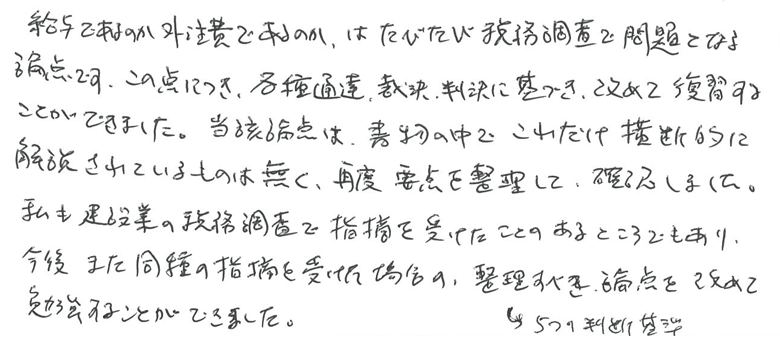 給与であるのか外注費であるのか、はたびたび税務調査で問題となる
論点です。この点につき、各種通達、裁決、判決に基づき、改めて復習する
ことができました。当該論点は、書物の中でこれだけ横断的に
解説されているものは無く、再度要点を整理して、確認しました。
私も建設業の税務調査で指摘を受けたことのあるところでもあり、
今後また同種の指摘を受けた場合の、整理すべき論点を改めて
勉強することができました。
↳5つの判断基準